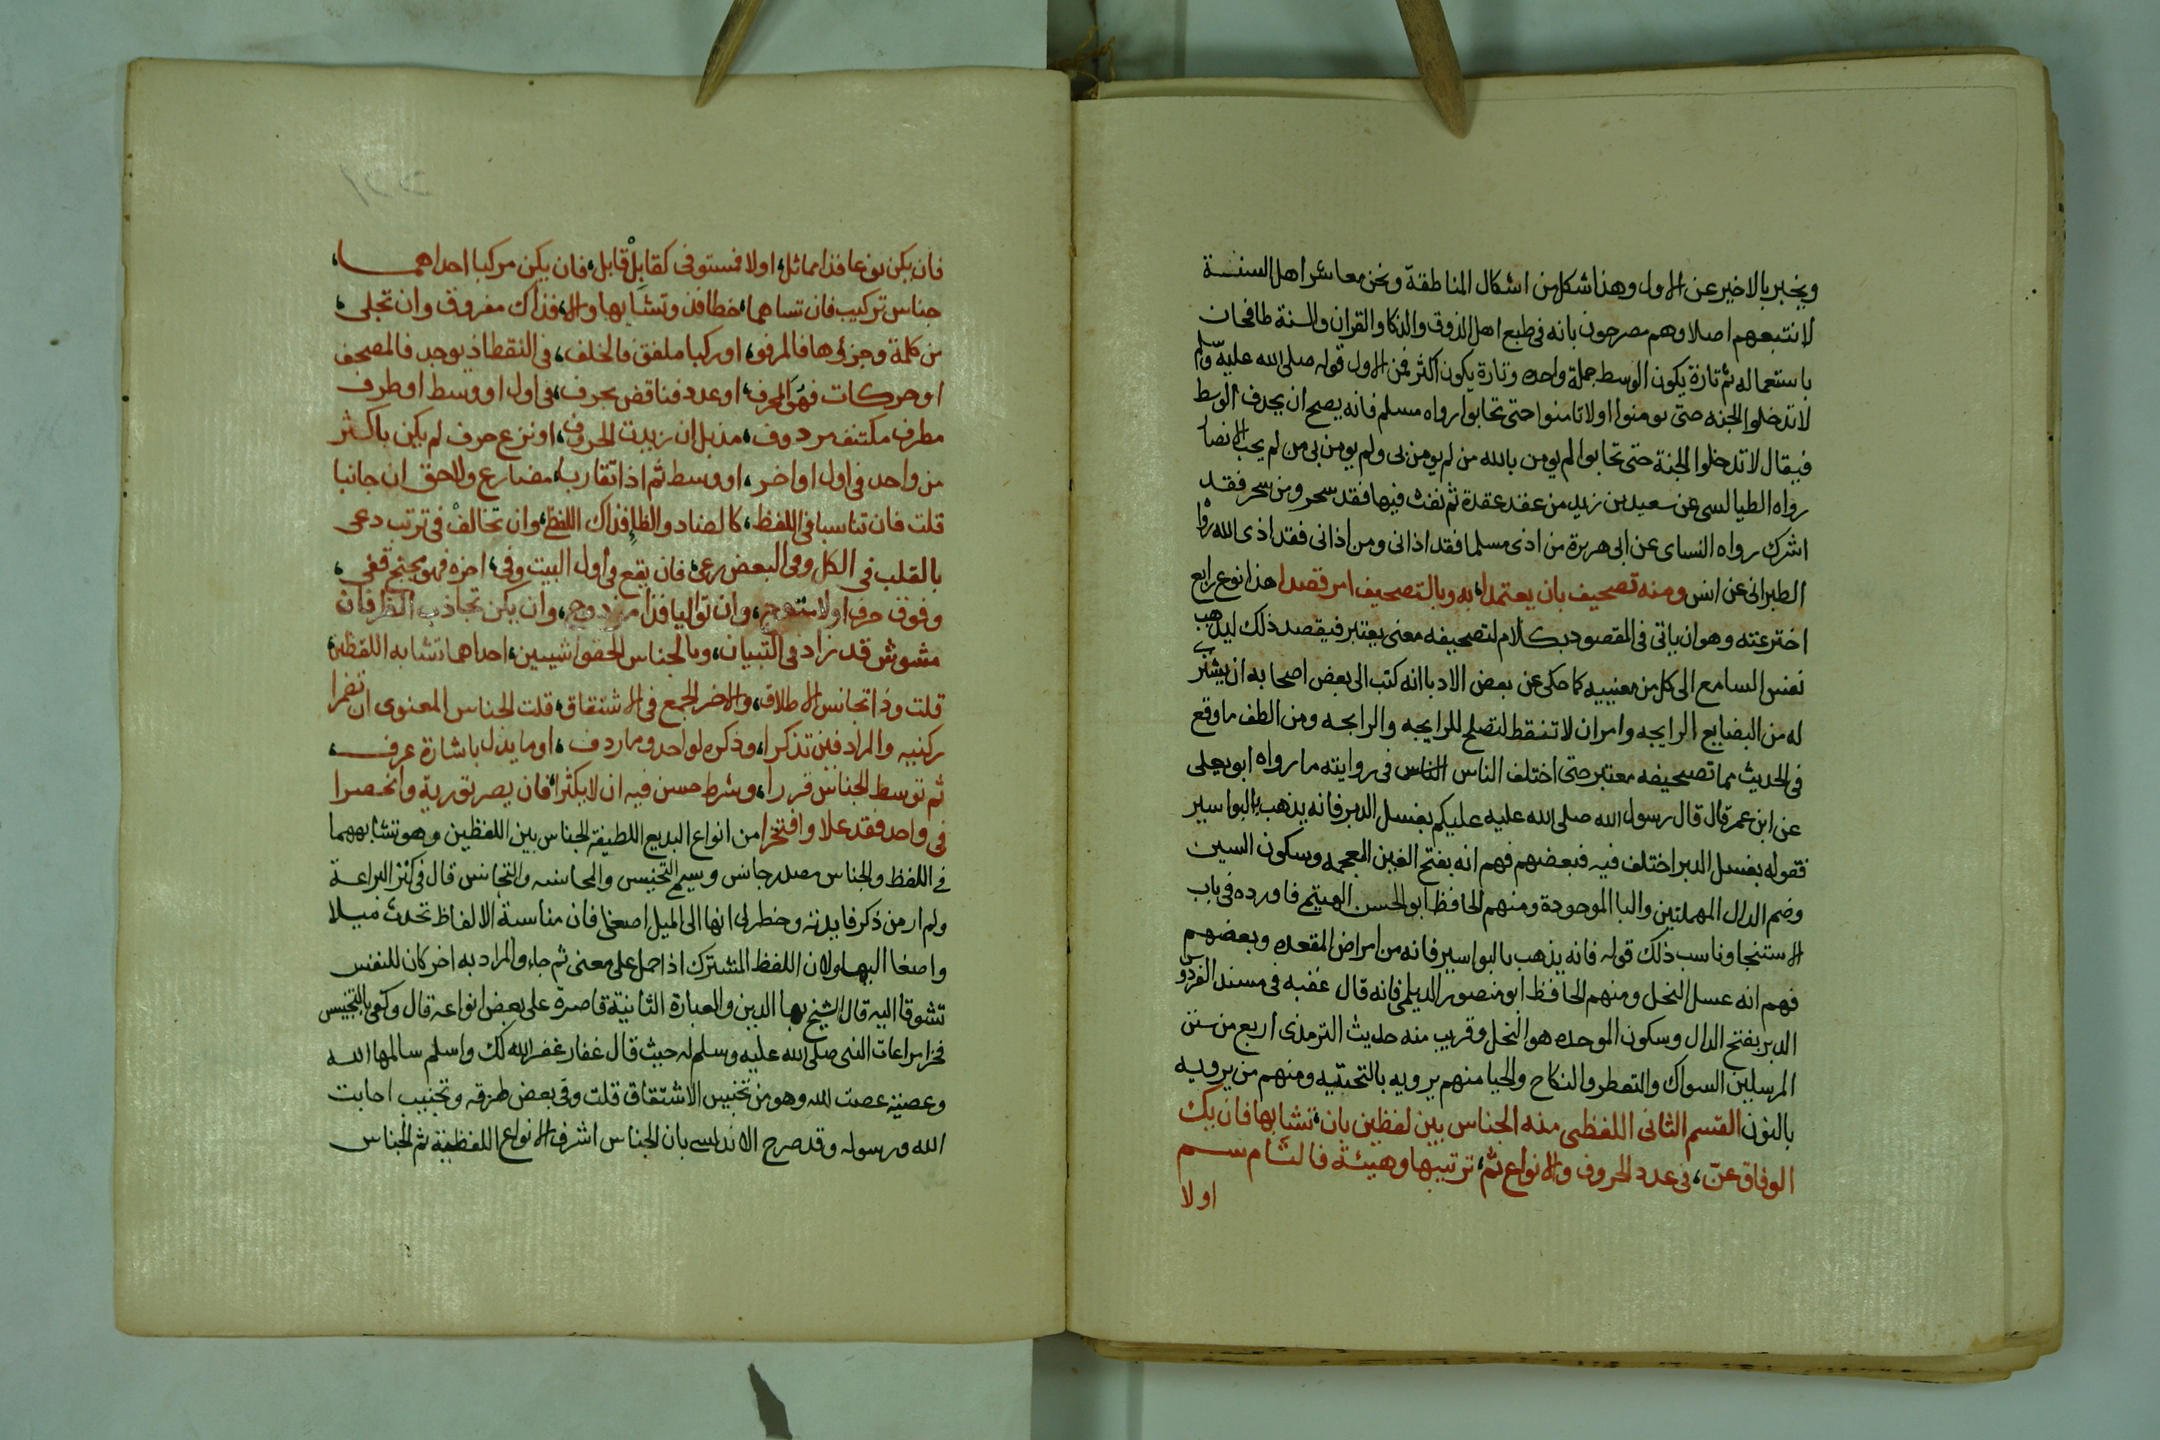 ويخبر بالاخير عن الاول وهذا شكل من اشكال المناطقة ونحن معاشر اهل السنة
لا نتبعهم اصلا وهم مصرحون بانه في طبع اهل الذوق والذكا والقران والسنة طافحان
باستعماله ثم تارة يكون الوسط جملة واحده وتارة يكون اكثر فمن الاول قوله صلى الله عليه وسلم
لا تدخلوا الجنه حتى تومنوا ولا تامنوا حتى تحابوا رواه مسلم فانه يصح ان يحذف الوسط
فيقال لا تدخلوا الجنة حتى تحابوا لم يومن بالله من لم يومن بي ولم يومن بي من لم يحب الانصار
رواه الطيالسي عن سعيد بن زيد من عقد عقدة ثم نفث فيها فقد سحر ومن سحر فقد
اشرك رواه النساي عن ابي هريرة من اذى مسلما فقد اذاني ومن اذاني فقد اذى الله رواه
الطبراني عن انس ومنه تصحيف بان يعتمدا، به وبالتصحيف امر قصدا هذا نوع رابع
اخترعته وهو ان ياتي في المقصود بكلام لتصحيفه معنى يعتبر فيقصد ذلك ليذهب
نفس السامع الى كل من معنييه كما حكى عن بعض الادبا انه كتب الى بعض اصحابه ان يشتري
له من البضايع الرايجه وامر ان لا تنقط لتصلح للرايجه والرابحه ومن الطف ما وقع
في الحديث مما تصحيفه معتبر حتى اختلف الناس الناس في روايته ما رواه ابو يعلى
عن ابن عمر قال قال رسول الله صلى الله عليه عليكم بغسل الدبر فانه يذهب بالبواسير
فقوله بغسل الدبر اختلف فيه فبعضهم فهم انه بفتح الغين المعجمه وسكون السين
وضم الدال المهملتين والبا الموحودة ومنهم الحافظ ابو الحسن الهيثمي فاورده في باب
الاستنجا وناسب ذلك قوله فانه يذهب بالبواسير فانه من امراض المقعده وبعضهم
فهم انه عسل النحل ومنهم الحافظ ابو منصور الديلمي فانه قال عقبه في مسند الفردوس
الدبر بفتح الدال وسكون الموحده هو النحل وقريب منه حديث الترمذي اربع من سنن
المرسلين السواك والتعطر والنكاح والحيا منهم يرويه بالتحتيه ومنهم من يرويه
بالنون القسم الثاني اللفظي منه الجناس بين لفظين بان، تشابها فان يكن
الوفاق عن، في عدد الحروف والانواع ثم، ترتيبها وهيئة فالتام سم
اولا
فان يكن نوعا فذا مماثل، اولا فمستوفى كقابل قابل، فان يكن مركبا احداهما،
جناس تركيب فان تساهما، خطا فذو تشابها والا، فذاك مفروق وان تجلى،
من كلمة وجزؤها فالمرفو، او ركبا ملفق فالخلف، في النقط اذ يوجد فالمصحف
او حركات فهو المحرف، او عدد فناقص بحرف، في اول او وسط او طرف
مطرف مكتنف مردوف، مذيل ان زيدت الحروف، او نزع حرف لم يكن باكثر
من واحد في اول او اخر، او وسط ثم اذا تقاربا، مضارع ولاحق ان جانبا
قلت فان تناسبا في اللفظ، كالضاد والظا فذاك اللفظي، وان تخالف في ترتب دعي
بالقلب في الكل وفي البعض رعي، فان يقع في اول البيت وفي، اخره فهو مجنح قفي،
وفوق حرف اولا متوج، وان تواليا فذا مزدوج، وان يكن تجاذب الطرفان
مشوش قد زاد في التبيان، وبالجناس الحقوا شيين، احداهما تشابه اللفظين
قلت وذا تجانس الاطلاق، والاخر الجمع في الاشتقاق، قلت الجناس المعنوي ان تضمرا
ركنيه والرادفين تذكرا، وذكره لواحد وما ردف، او ما يدل باشارة عرف،
ثم توسط الجناس قررا، وشرط حسن فيه ان لا يكثرا، فان يصر تورية وانحصرا
في واحد فقد علا وافتخرا من انواع البديع اللطيفة الجناس بين اللفظين وهو تشابههما
في اللفظ والجناس مصدر جانس وسمي التجنيس والمجانسه والتجانس قال في كنز البراعة
ولم ار من ذكر فايدته وخطر لي انها الى الميل اصغا فان مناسبة الالفاظ تحدث ميلا
واصغا اليها ولان اللفظ المشترك اذا حمل على معنى ثم جاء والمراد به اخر كان للنفس
تشوقا اليه قال الشيخ بها الدين والعبارة الثانية قاصرة على بعض انواعه قال وكفى بالتجنيس
فخرا مراعات النبي صلى الله عليه وسلم له حيث قال غفار غفر الله لك واسلم سالمها الله
وعصيه عصت الله وهو من تجنيس الاشتقاق قلت وفي بعض طرقه وتجيب اجابت
الله ورسوله وقد صرح الاندلسي بان الجناس اشرف الانواع اللفظية ثم الجناس